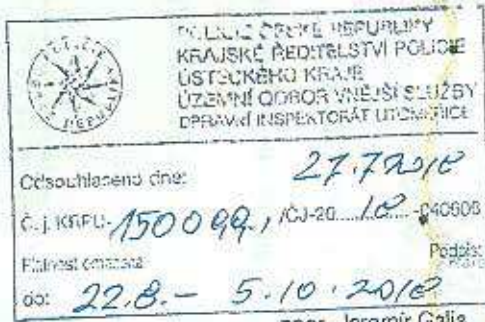 POLICIE ČESKÉ REPUBLIKY
KRAJSKÉ ŘEDITELSTVÍ POLICIE
ÚSTECKÉHO KRAJE
ÚZEMNÍ ODBOR VNĚJŠÍ SLUŽBY
DPRAVNÍ INSPEKTORÁT LITOMĚŘICE
Odsouhlaseno dne: 27.7.2018
Č. j. KRPU- 150099, /ČJ-20 18 -040606
Podpis:
do: 22.8. - 5.10.2018
Jaromír Galia